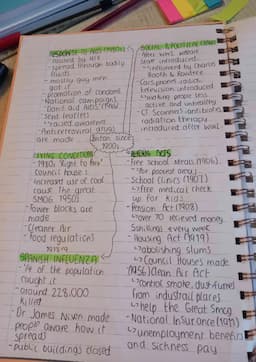 RESPONSE TO AIDS EPIDEMIC
- caused by HIV
- spread through bodily
fluids
- mostly gay men
got it
- promotion of condoms
- National campaigns
"Don't die Aids" (1986)
- sent leaflets
↳ raised awareness
- Anti-retroviral drugs
are made
SOCIAL & POLITICAL CHANGE
- After WW2 welfare
state introduced
↳ influenced by Charles
Booth & Rowntree
- Cars, phones, radios,
television introduced
↳ making people less
active and unhealthy
- CT Scanners, antibiotics
radiation therapy
introduced after WW2
Britain since
1900s
LIVING CONDITIONS
- 1980s 'Right to Buy'
council houses
- Increased use of coal
cause the great
SMOG 1950s
- Tower blocks are
made
- Cleaner Air
- Food regulations
1918-19
SPANISH INFLUENZA
- 1/4 of the population
caught it
- around 228,000
killed
- Dr James Niven made
people aware how it
spreads
- public buildings closed
ACTS
- Free School Meals (1906)
↳ for poorest areas
- School Clinics (1907)
↳ free medical check
up for kids
- Pension Act (1908)
↳ over 70 recieved money
5 shillings every week
- Housing Act (1919)
↳ abolishing slums
↳ Council Houses made
- (1956) Clean Air Act
↳ control smoke, dust, fumes
from industrial places
↳ help the Great Smog
- National Insurance (1911)
↳ unemployment benefits
and sickness pay